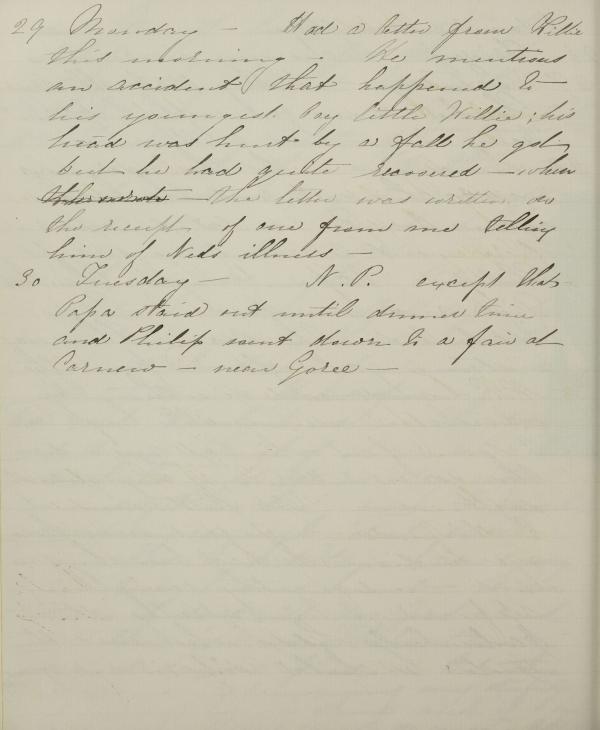 29 Monday — Had a letter from Willie
this morning. He mentions
an accident that happened to
his youngest boy little Willie; his
head was hurt by a fall he got
but he had quite recovered — when
the letter was written on
the receipt of one from me telling
him of Neds illness —
30 Tuesday — N.P. except that
Papa staid out until dinner time
and Philip went down to a fair at
Carnew — near Goree —